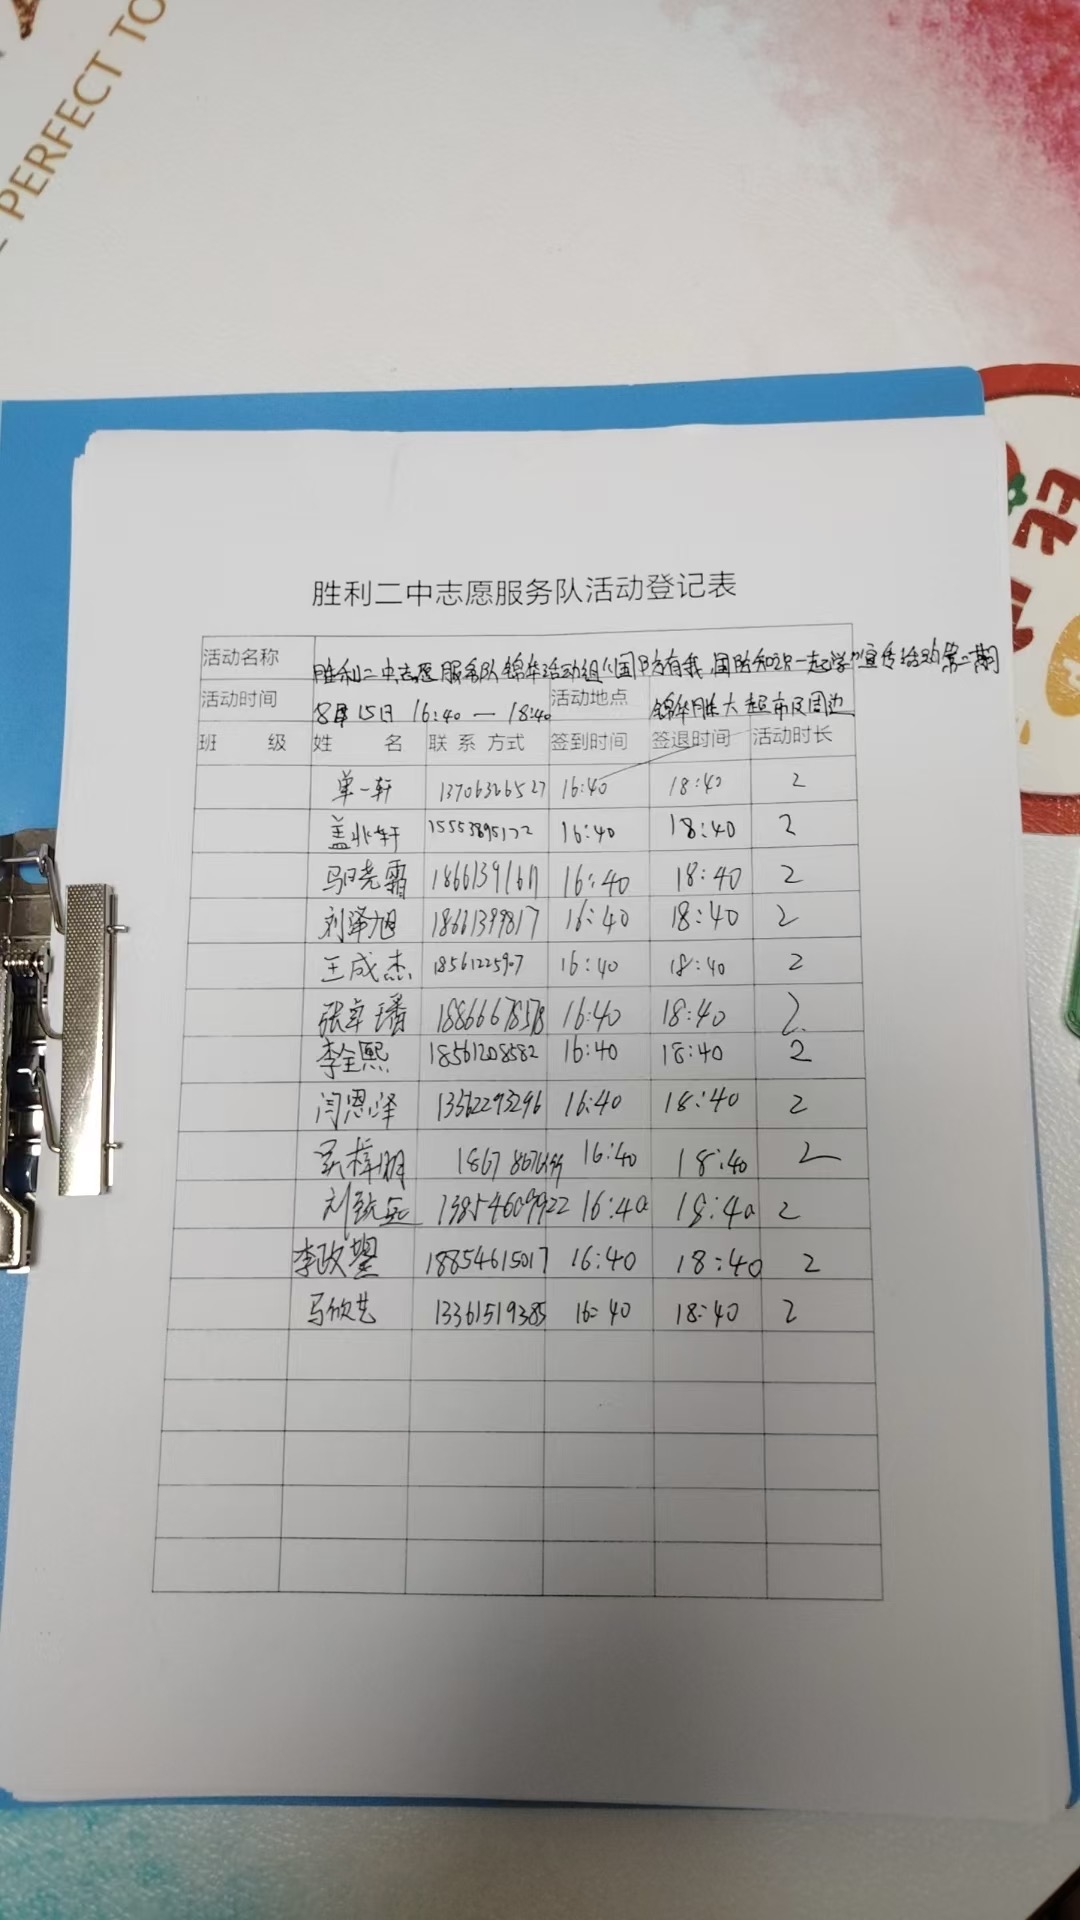 PERFECT TO
胜利二中志愿服务队活动登记表
活动名称 胜利二中志愿服务队锦华活动组"国防有我 国防知识一起学"宣传活动第二期
活动时间 8月15日 16:40 — 18:40 活动地点 锦华胜大超市及周边
班 级 姓 名 联系方式 签到时间 签退时间 活动时长
单一轩 13706366527 16:40 18:40 2
盖兆轩 15553895122 16:40 18:40 2
16:40 18:40 2
刘泽旭 18661399817 16:40 18:40 2
王成杰 18561225907 16:40 18:40 2
张卓璠 16:40 18:40 2
李全熙 18561208582 16:40 18:40 2
闫恩泽 13562293296 16:40 18:40 2
16:40 18:40 2
13854609922 16:40 18:40 2
李政曌 18854615017 16:40 18:40 2
马欣艺 13361519385 16:40 18:40 2